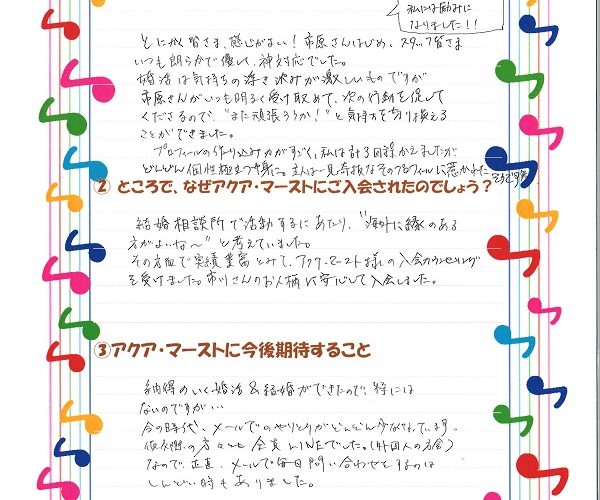 私には励みに
なりました!!
とにかく皆さま、感じがよい!市原さんはじめ、スタッフ皆さま
いつも朗らかで優しい、神対応でした。
婚活は気持ちの浮き沈みが激しいものですが
市原さんがいつも明るく受け取めて、次の行動を促して
くださるので、"また頑張ろうか!"と気持ちを切り換える
ことができました。
プロフィールの作り込み力がすごく、私は計3回録かえましたが
どんどん個性極立つ中身に。主人は一見奇抜なそのプロフィールに惹かれた
そうです笑
②ところで、なぜアクア・マーストにご入会されたのでしょう?
結婚相談所で活動するにあたり、"海外に縁のある
方がよいな〜"と考えていました。
その方面で実績豊富とみて、アクア・マースト様の入会カウンセリング
を受けました。市川さんのお人柄に安心して入会しました。
③アクア・マーストに今後期待すること
納得のいく婚活&結婚ができたので、特には
ないのですが…
今の時代、メールでのやりとりがどんどん少なくなっています。
仮交際の方々とも全員LINEでした。(外国人の方含)
なので、正直、メールで毎日問い合わせをするのは
しんどい時もありました。